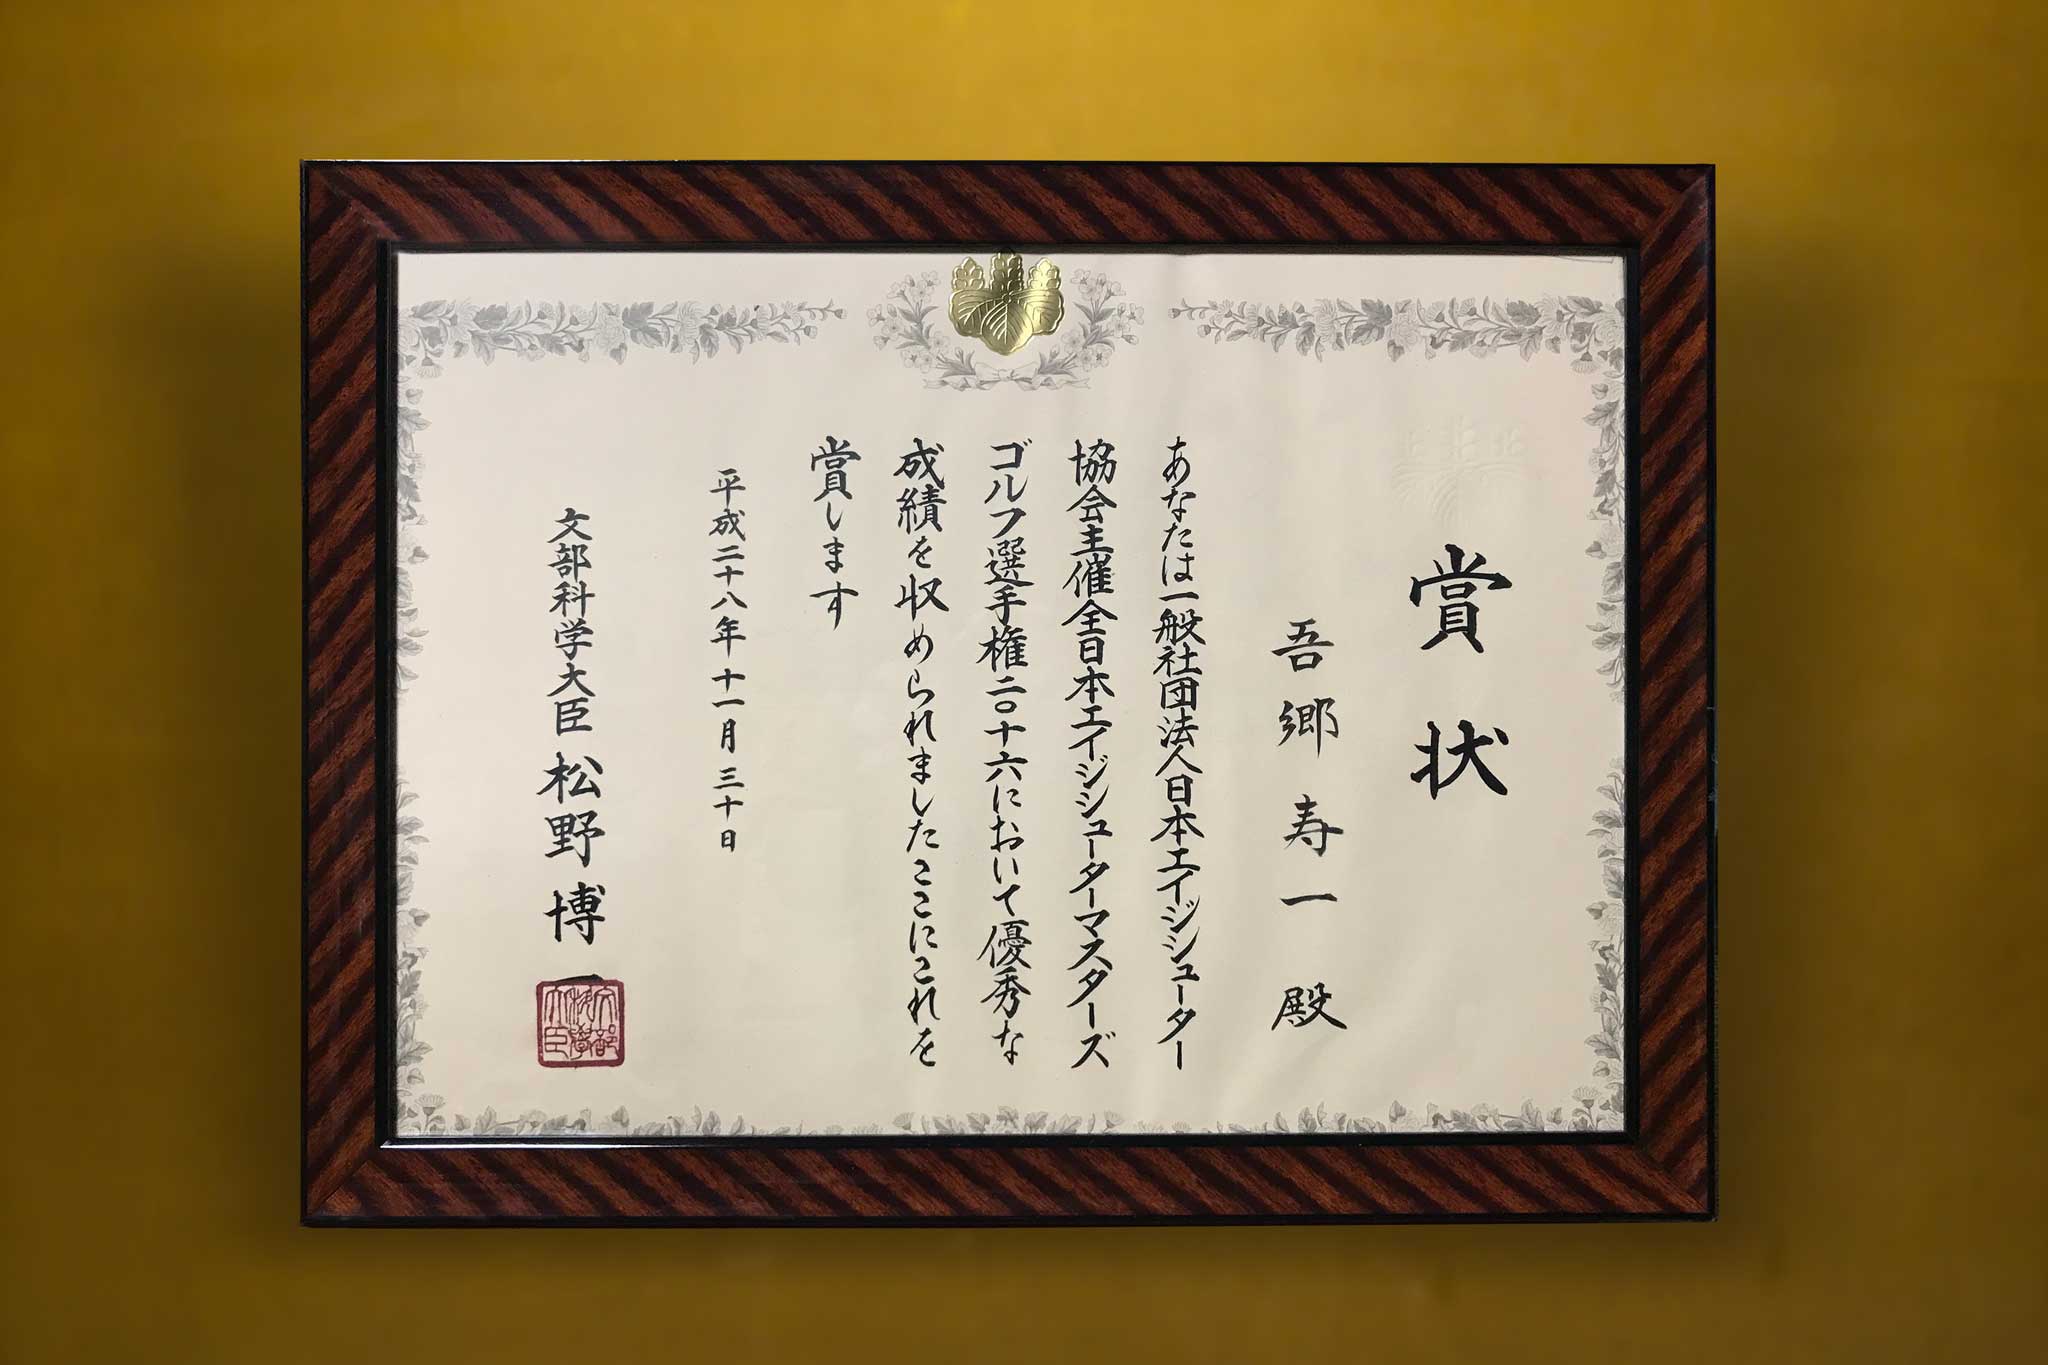 賞状
吾郷寿一殿
あなたは一般社団法人日本エイジシューター
協会主催全日本エイジシューターマスターズ
ゴルフ選手権二〇十六において優秀な
成績を収められましたここにこれを
賞します
平成二十八年十一月三十日
文部科学大臣 松野博一
文部科学大臣